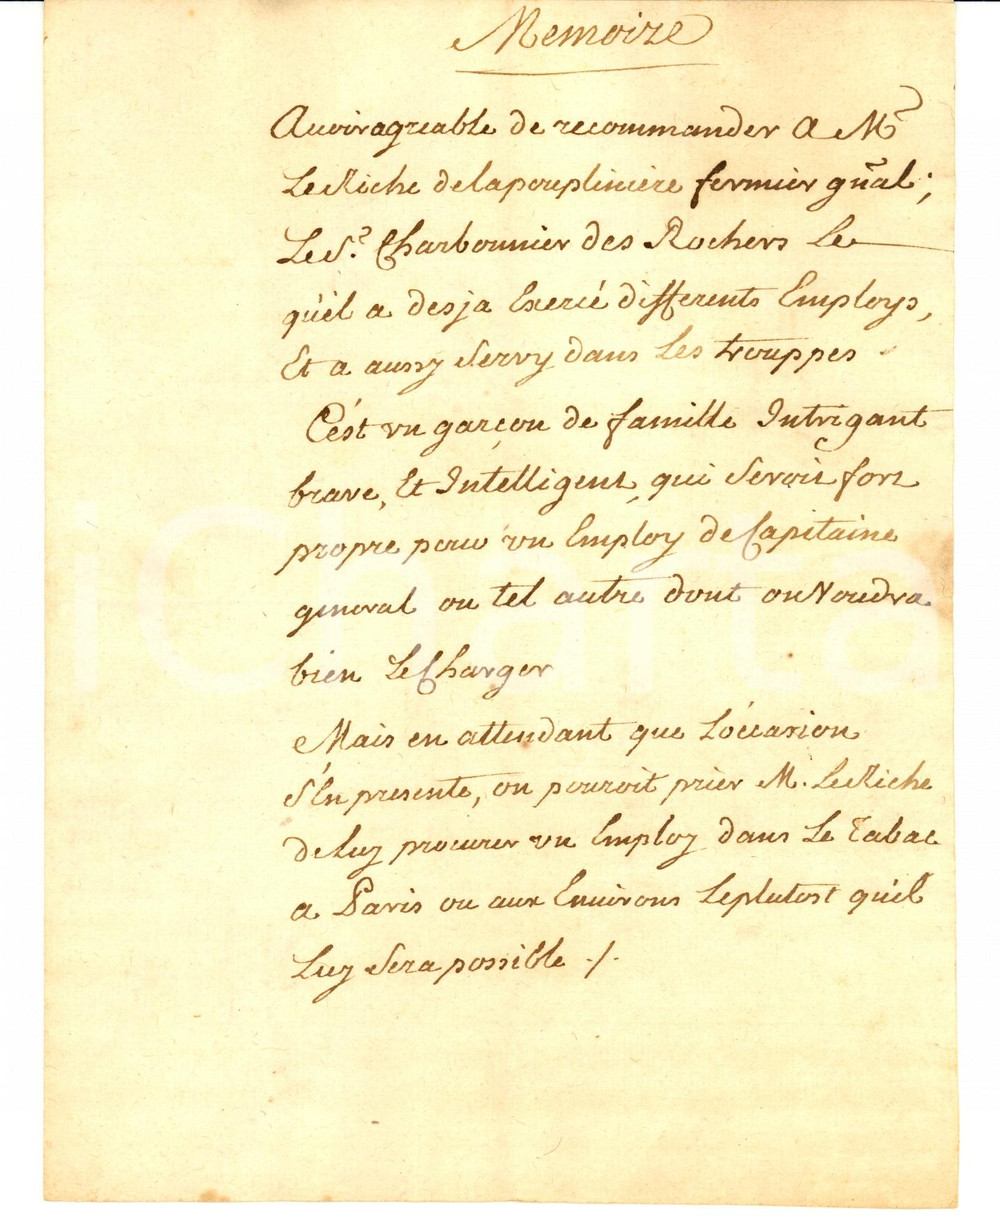 Memoire
Avoir agreable de recommander a Mr
Le Riche de la poupliniere fermier gñal;
Le Sr. Charbonnier des Rochers Le
qu'il a desja Exercé differents Employs,
Et a aussy Servy dans Les trouppes
C'est vn garçon de famille Intrigant
brave, Et Intelligent, qui Seroit fort
propre pour vn Employ de Capitaine
general ou tel autre dont on Voudra
bien Le Charger
Mais en attendant que L'occasion
S'En presente, on pouroit prier M. Le Riche
De Luy procurer vn Employ dans Le Tabac
a Paris ou aux Environs Le plutost qu'il
Luy Sera possible ./.
iCharta